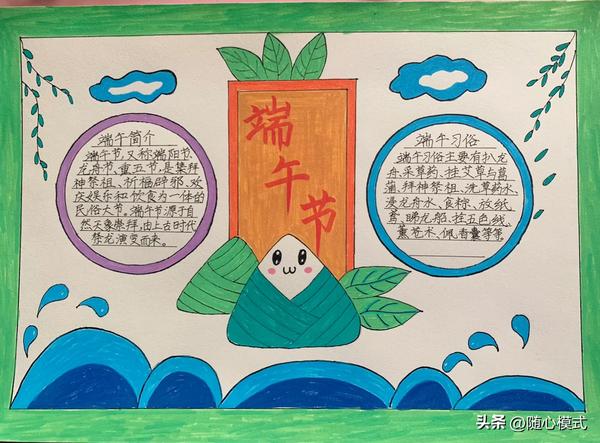 端午节
端午简介
端午节,又称端阳节、
龙舟节、重五节,是集拜
神祭祖、祈福辟邪、欢
庆娱乐和饮食为一体的
民俗大节。端午节源于自
然天象崇拜,由上古时代
祭龙演变而来。
端午习俗
端午习俗主要有扒龙
舟、采草药、挂艾草与菖
蒲、拜神祭祖、洗草药水、
浸龙舟水、食粽、放纸
鸢、睇龙船、拴五色线、
薰苍术、佩香囊等等。
头条 @随心模式